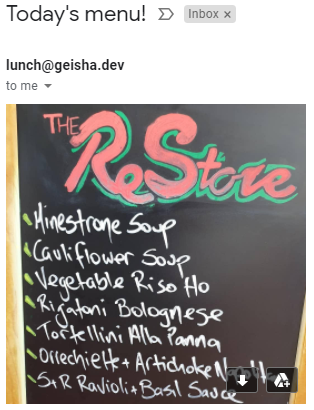 Today's menu!
Inbox ×
lunch@geisha.dev
to me
THE
ReStore
Minestrone Soup
Cauliflower Soup
Vegetable Risotto
Rigatoni Bolognese
Tortellini Alla Panna
Orrechiette + Artichoke
S+R Ravioli + Basil Sauce